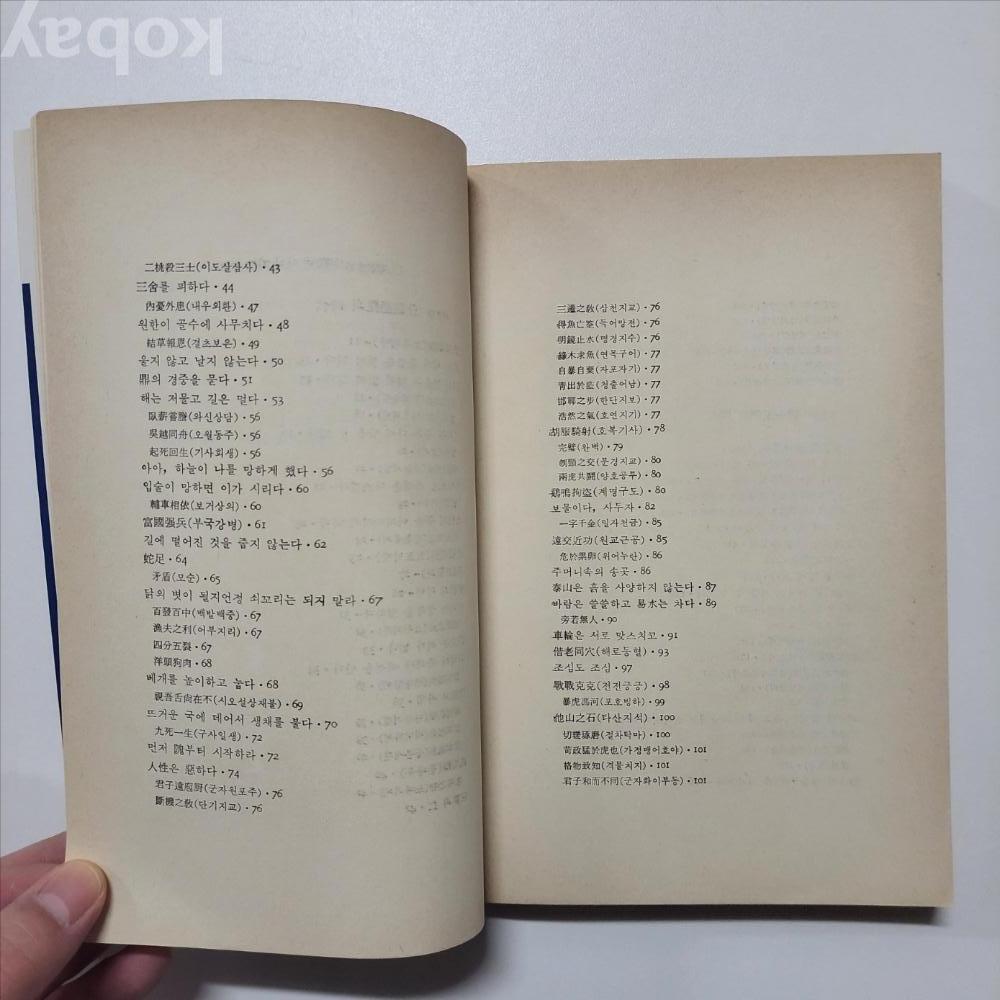 kobay
二桃殺三士(이도살삼사)·43
三舍를 피하다·44
內憂外患(내우외환)·47
원한이 골수에 사무치다·48
結草報恩(결초보은)·49
울지 않고 날지 않는다·50
鼎의 경중을 묻다·51
해는 저물고 길은 멀다·53
臥薪嘗膽(와신상담)·56
吳越同舟(오월동주)·56
起死回生(기사회생)·56
아아, 하늘이 나를 망하게 했다·56
입술이 망하면 이가 시리다·60
輔車相依(보거상의)·60
富國强兵(부국강병)·61
길에 떨어진 것을 줍지 않는다·62
蛇足·64
矛盾(모순)·65
닭의 볏이 될지언정 쇠꼬리는 되지 말라·67
百發百中(백발백중)·67
漁夫之利(어부지리)·67
四分五裂·67
洋頭狗肉·68
베개를 높이하고 눕다·68
視吾舌尙在不(시오설상재불)·69
뜨거운 국에 데어서 생채를 불다·70
九死一生(구사일생)·72
먼저 隗부터 시작하라·72
人性은 惡하다·74
君子遠庖厨(군자원포주)·76
斷機之敎(단기지교)·76
三遷之敎(삼천지교)·76
得魚亡筌(득어망전)·76
明鏡止水(명경지수)·76
緣木求魚(연목구어)·77
自暴自棄(자포자기)·77
靑出於藍(청출어남)·77
邯鄲之步(한단지보)·77
浩然之氣(호연지기)·77
胡服騎射(호복기사)·78
完璧(완벽)·79
刎頸之交(문경지교)·80
兩虎共鬪(양호공투)·80
鷄鳴狗盜(계명구도)·80
보물이다, 사두자·82
一字千金(일자천금)·85
遠交近功(원교근공)·85
危於累卵(위어누란)·86
주머니속의 송곳·86
泰山은 흙을 사양하지 않는다·87
바람은 쓸쓸하고 易水는 차다·89
旁若無人·90
車輪은 서로 맞스치꼬·91
偕老同穴(해로동혈)·93
조심도 조심·97
戰戰克克(전전긍긍)·98
暴虎馮河(포호빙하)·99
他山之石(타산지석)·100
切磋琢磨(절차탁마)·100
苛政猛於虎也(가정맹어호야)·101
格物致知(격물치지)·101
君子和而不同(군자화이부동)·101